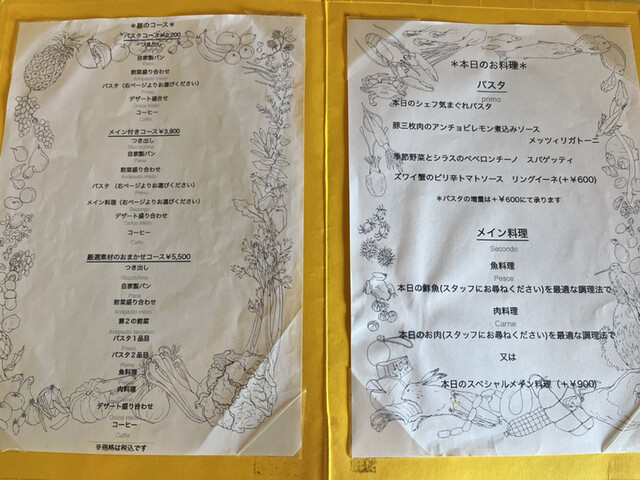 ＊昼のコース＊
パスタコース¥2,200
つき出し
Stuzzichine
自家製パン
Pane
前菜盛り合わせ
Antipasto misto
パスタ（右ページよりお選びください）
Primo
デザート盛合せ
Dolce misto
コーヒー
Caffe
メイン付きコース¥3,800
つき出し
Stuzzichine
自家製パン
Pane
前菜盛り合わせ
Antipasto misto
パスタ （右ページよりお選びください）
Primo
メイン料理（右ページよりお選びください）
Secondo
デザート盛り合わせ
Dolce misto
コーヒー
Caffe
厳選素材のおまかせコース¥5,500
つき出し
Stuzzichine
自家製パン
Pane
前菜盛り合わせ
Antipasto misto
第２の前菜
Antipasto secondo
パスタ１品目
Primo
パスタ２品目
Primo
魚料理
Pesce
肉料理
Carne
デザート盛り合わせ
Dolce misto
コーヒー
Caffe
※価格は税込です
＊本日のお料理＊
パスタ
primo
本日のシェフ気まぐれパスタ
豚三枚肉のアンチョビレモン煮込みソース
メッツィリガトーニ
季節野菜とシラスのペペロンチーノ　スパゲッティ
ズワイ蟹のピリ辛トマトソース　リングイーネ(+￥600)
＊パスタの増量は+￥600にて承ります
メイン料理
Secondo
魚料理
Pesce
本日の鮮魚(スタッフにお尋ねください)を最適な調理法で
肉料理
Carne
本日のお肉(スタッフにお尋ねください)を最適な調理法で
又は
本日のスペシャルメチン料理（+￥900)